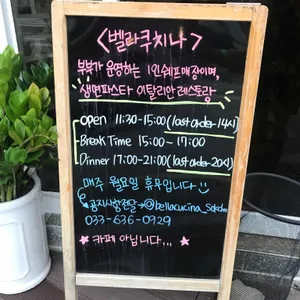 <벨라쿠치나>
부부가 운영하는 1인쉐프매장이며,
생면파스타 이탈리안레스토랑
open 11:30-15:00 (last order 14시)
Break Time 15:00 - 17:00
Dinner 17:00-21:00 (last order 20시)
매주 월요일 휴무입니다
공지사항전달→@bellacucina_Sokcho
033-636-0929
★ 카페 아닙니다... ★